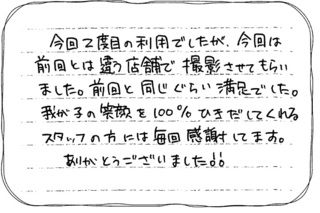 今回2度目の利用でしたが、今回は
前回とは違う店舗で撮影させてもらい
ました。前回と同じぐらい満足でした。
我が子の笑顔を100%ひきだしてくれる
スタッフの方には毎回感謝してます。
ありがとうございました!!